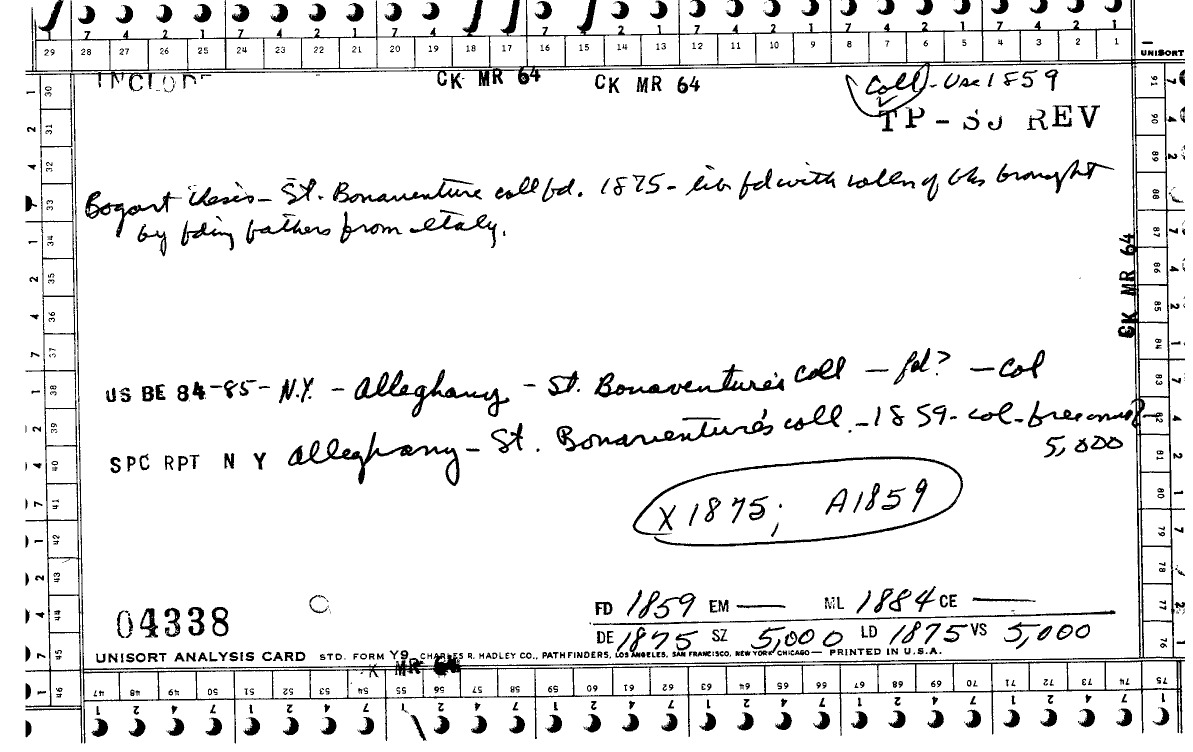 7 4 2 1 7 4 2 1 7 4 2 1 7 4 2 1 7 4 2 1
29 28 27 26 25 24 23 22 21 20 19 18 17 16 15 14 13 12 11 10 9 8 7 6 5 4 3 2 1
UNISORT
CK MR 64 CK MR 64 Coll - Use 1859
TP - SJ REV
Bogart thesis - St. Bonaventure coll fd. 1875 - lib fd with colln of bks brought
by fding fathers from Italy.
CK MR 64
US BE 84-85 - N.Y. - Alleghany - St. Bonaventure's coll - fd? - Col
SPC RPT N Y Alleghany - St. Bonaventure's coll - 1859 - col - free
5,000
X 1875; A1859
04338
FD 1859 EM — ML 1884 CE —
DE 1875 SZ 5,000 LD 1875 VS 5,000
UNISORT ANALYSIS CARD STD. FORM Y9 CHARLES R. HADLEY CO., PATHFINDERS, LOS ANGELES, SAN FRANCISCO, NEW YORK, CHICAGO — PRINTED IN U.S.A.
K MR 64
46 47 48 49 50 51 52 53 54 55 56 57 58 59 60 61 62 63 64 65 66 67 68 69 70 71 72 73 74 75